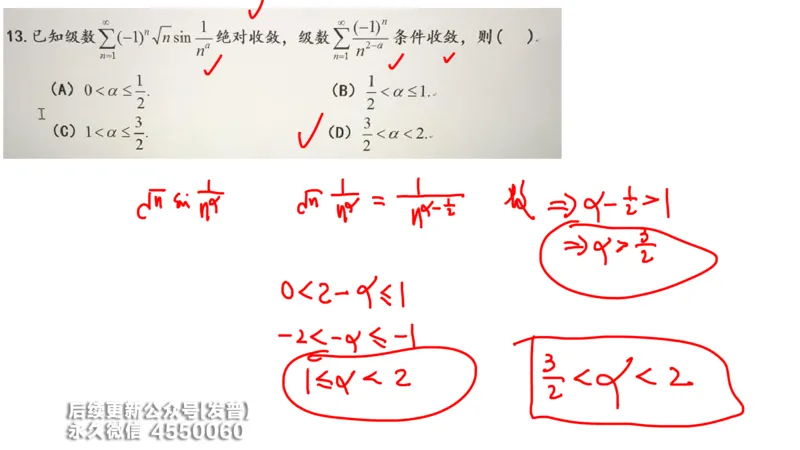 13.已知级数∑_{n=1}^{∞}(-1)^n √n sin 1/n^α 绝对收敛，级数∑_{n=1}^{∞} (-1)^n/n^{2-α} 条件收敛，则( ).
(A) 0<α≤1/2. (B) 1/2<α≤1.
(C) 1<α≤3/2. (D) 3/2<α<2.
√n sin 1/n^α √n 1/n^α = 1/n^{α-1/2} 收 ⇒ α-1/2>1
⇒ α>3/2
0<2-α≤1
-2<-α≤-1
1≤α<2
3/2<α<2
后续更新公众号(发普)
永久微信 4550060